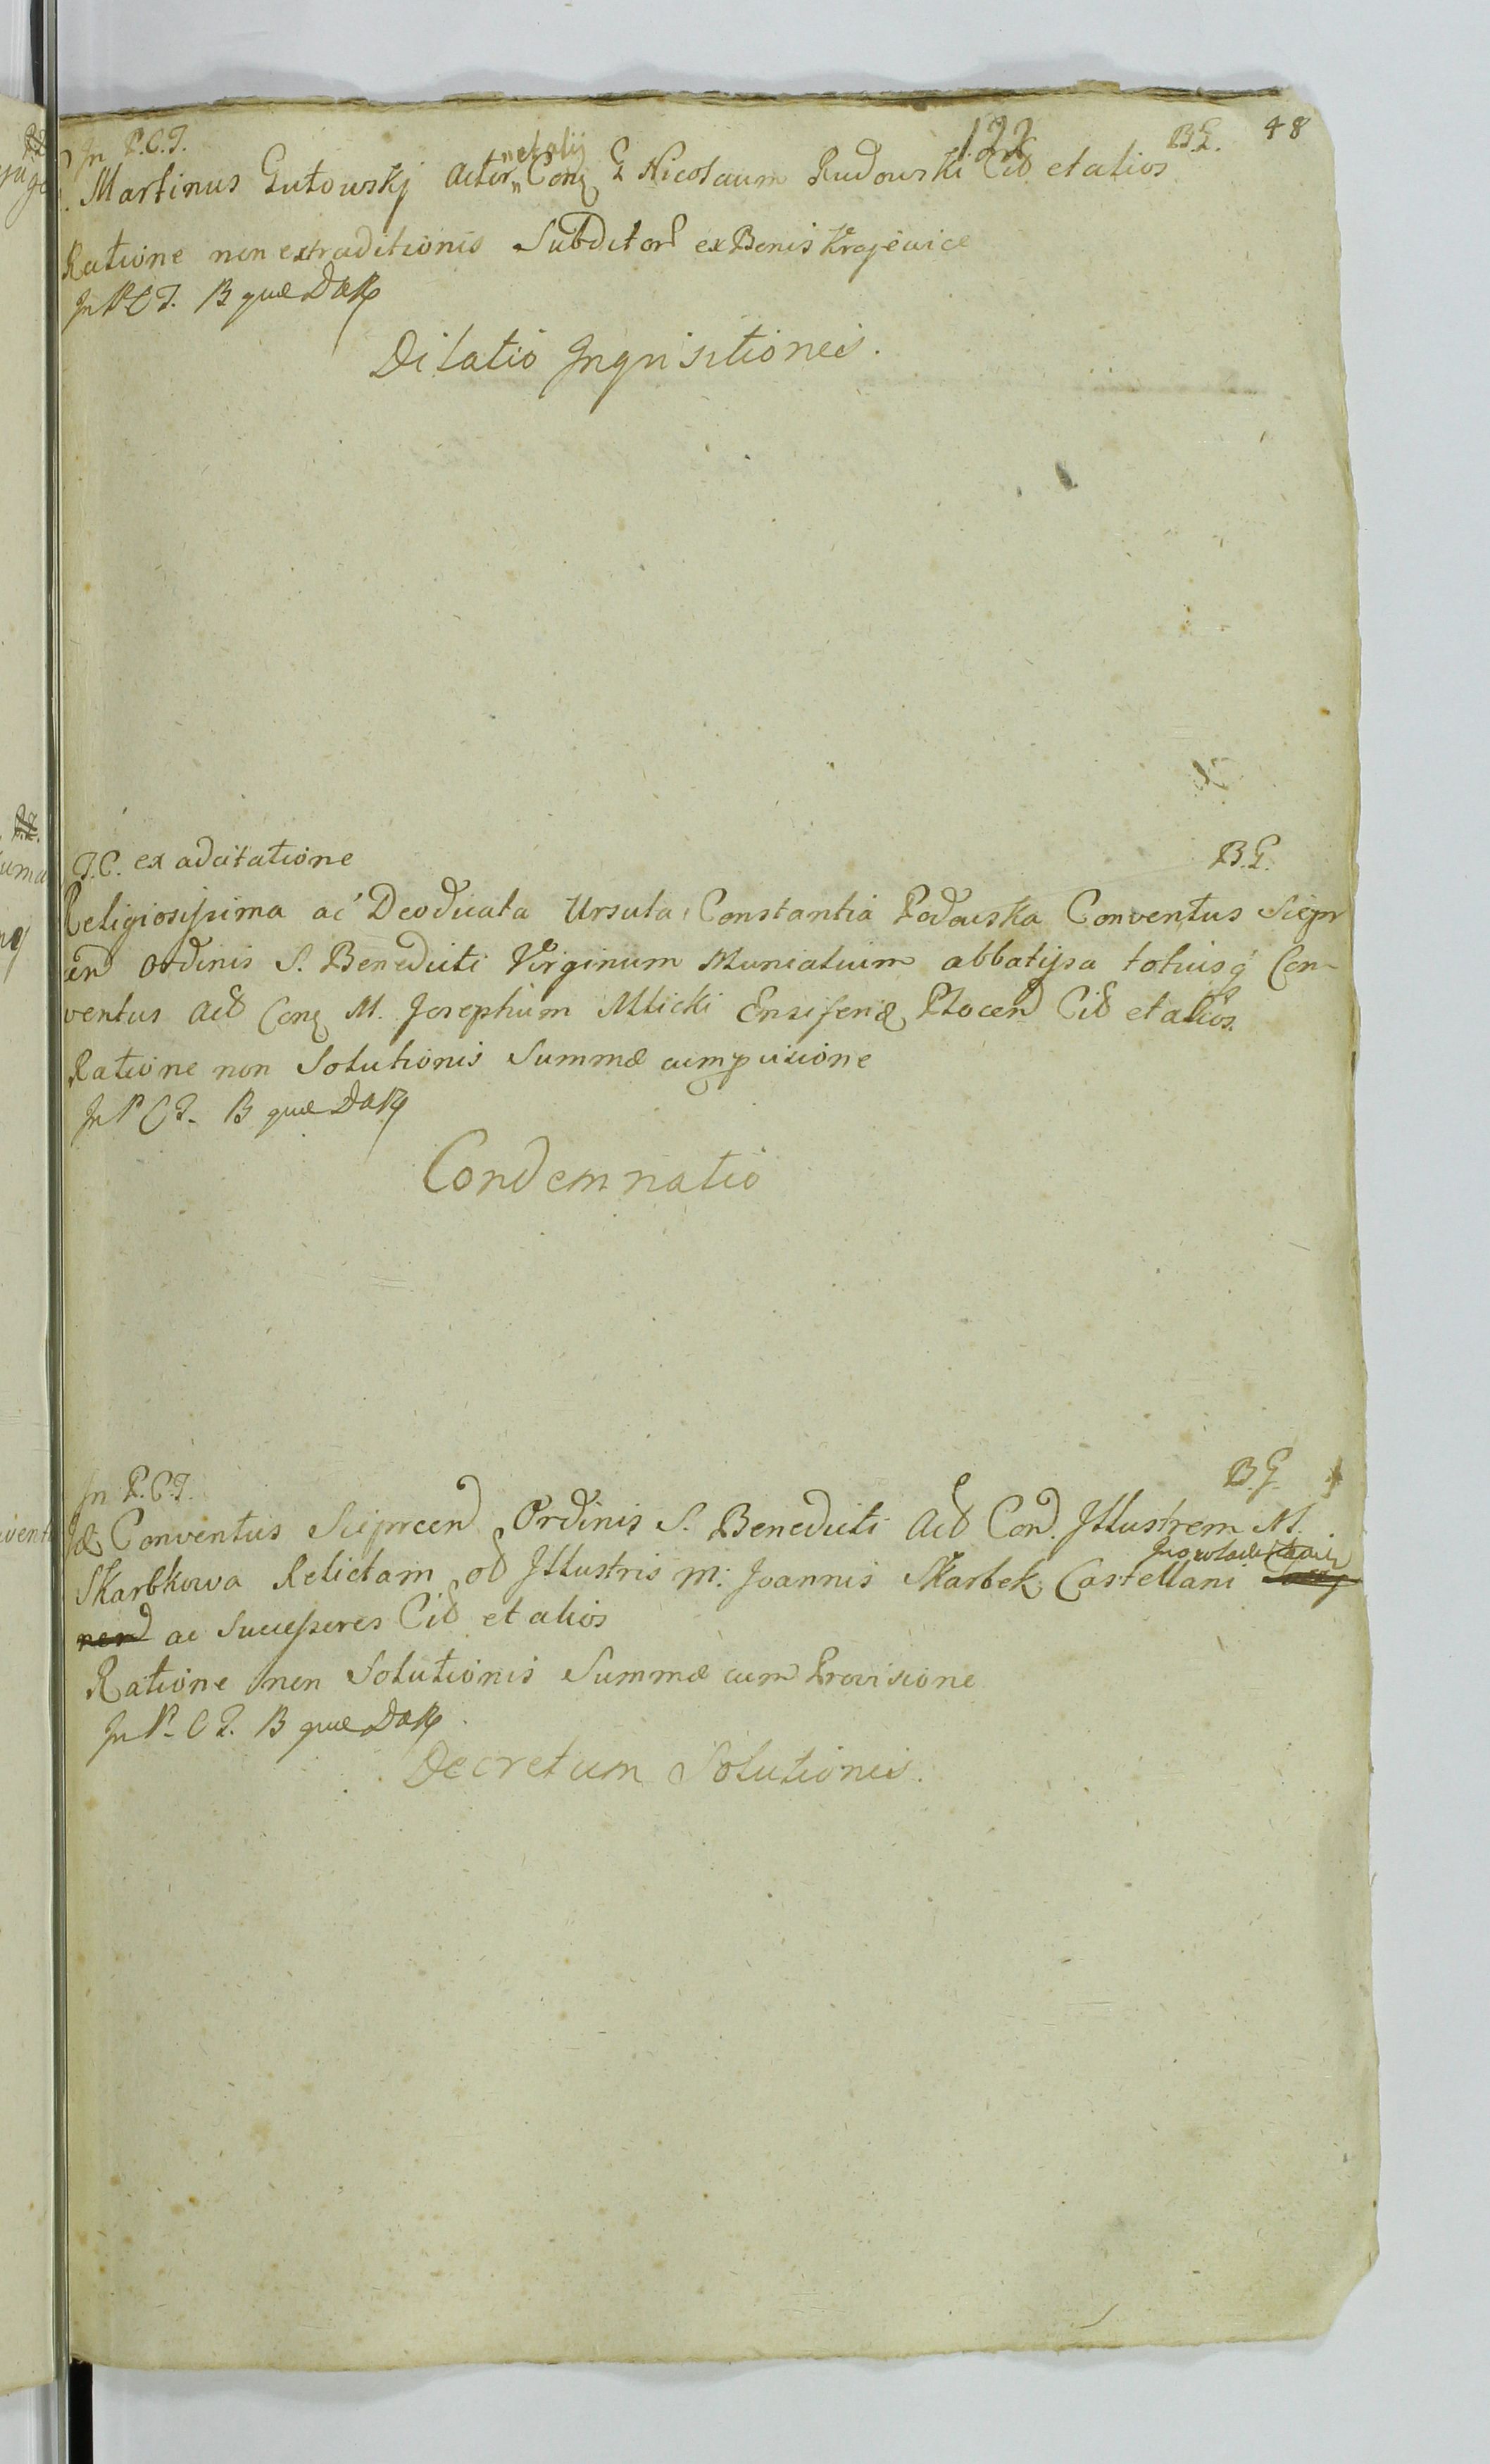 122 B.G. 48
In P.C.T.
Martinus Gutowskj Actor et alij Conq G Nicolaum Rudowski Cit et alios
Ratione non extraditionis Subditor ex Bonis Krajewice
In P C T. B quæ
Dilatio Inquisitionis.
T.C. ex adcitatione B.G.
Religiosissima ac Deodicata Ursula Constantia Podoska Conventus Siepr
cen Ordinis S. Benedicti Virginum Monialium abbatissa totiusq Con-
ventus Act Conq M. Josephum Mlicki Ensiferum Plocen Cit et alios
Ratione non Solutionis Summæ cum pvisione
In P C T. B quæ
Condemnatio
In P.C.T. B.G.
Id Conventus Sieprcen Ordinis S. Benedicti Act Con. Illustrem M.
Skarbkowa Relictam ol Illustris M: Joannis Skarbek Castellani
nen ac Successores Cit et alios
Ratione non Solutionis Summæ cum Provisione
In P. C T. B quæ
Decretum Solutionis.